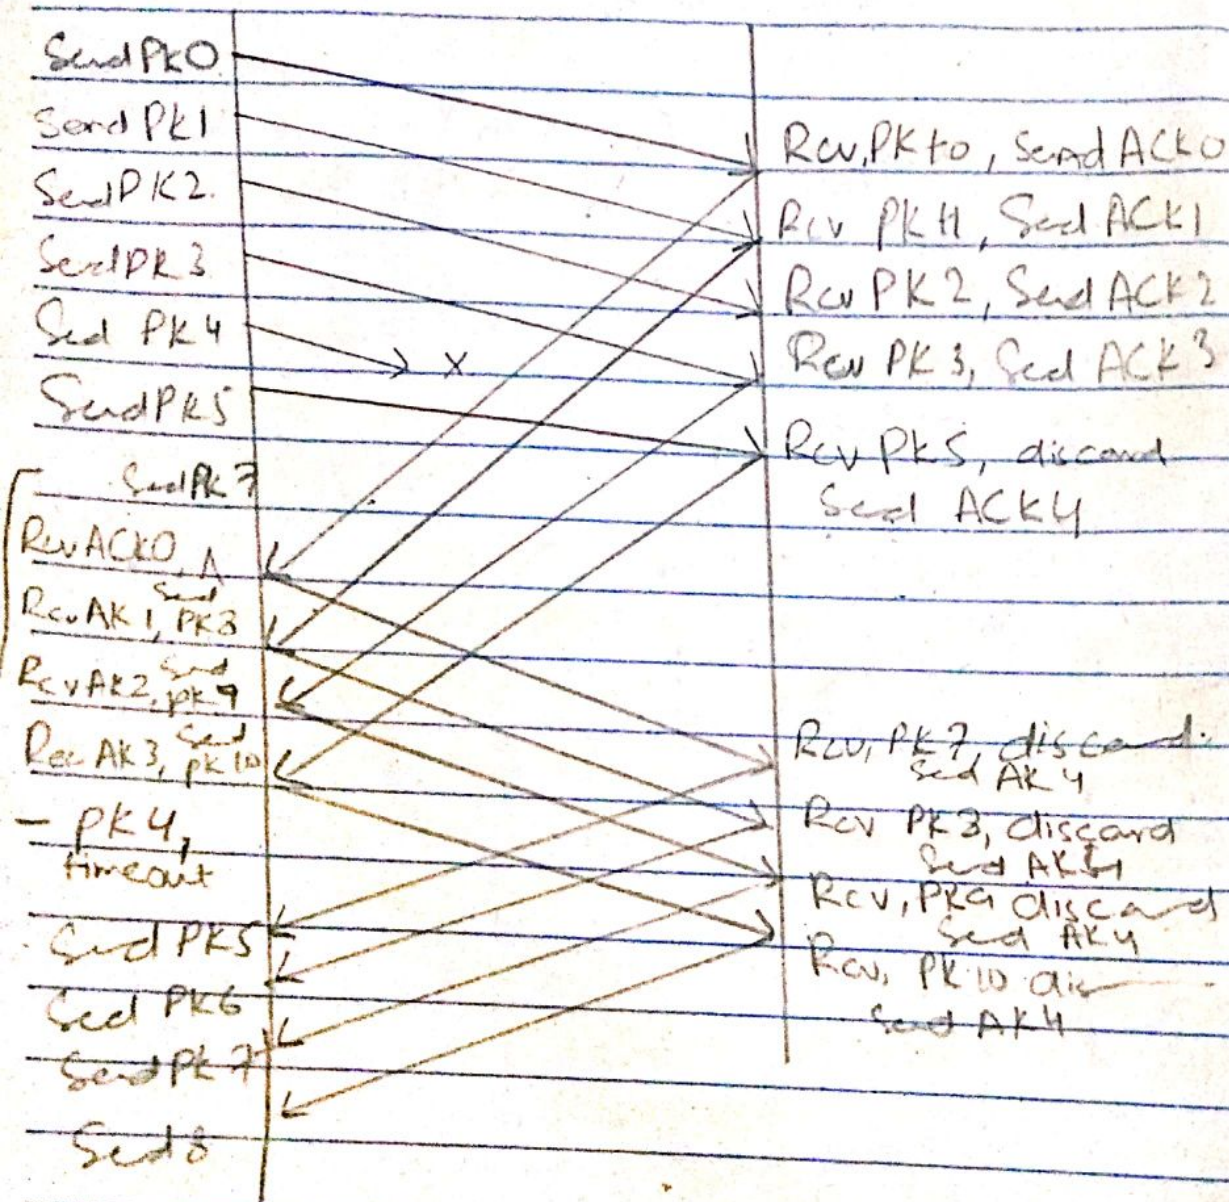 Send PK0
Send PK1
Send PK2
Send PK3
Sed PK4
X
Send PK5
Sed PK 7
Rcv ACK0,
Rcv AK1, Send PK8
Rcv AK2, Send PK9
Rec AK3, Send PK10
- PK4,
timeout
Send PK5
Sed PK6
Send PK 7
Sed 8
Rcv, PKt0, Send ACK0
Rcv PKt1, Sed ACK1
Rcv PK2, Sed ACK2
Rcv PK3, Sed ACK3
Rcv PK5, discard
Sed ACK4
Rcv, PK7, discard.
Sed AK4
Rcv PK8, discard
Send AK4
Rcv, PK9 discard
Send AK4
Rcv, PK10 dis
Send AK4